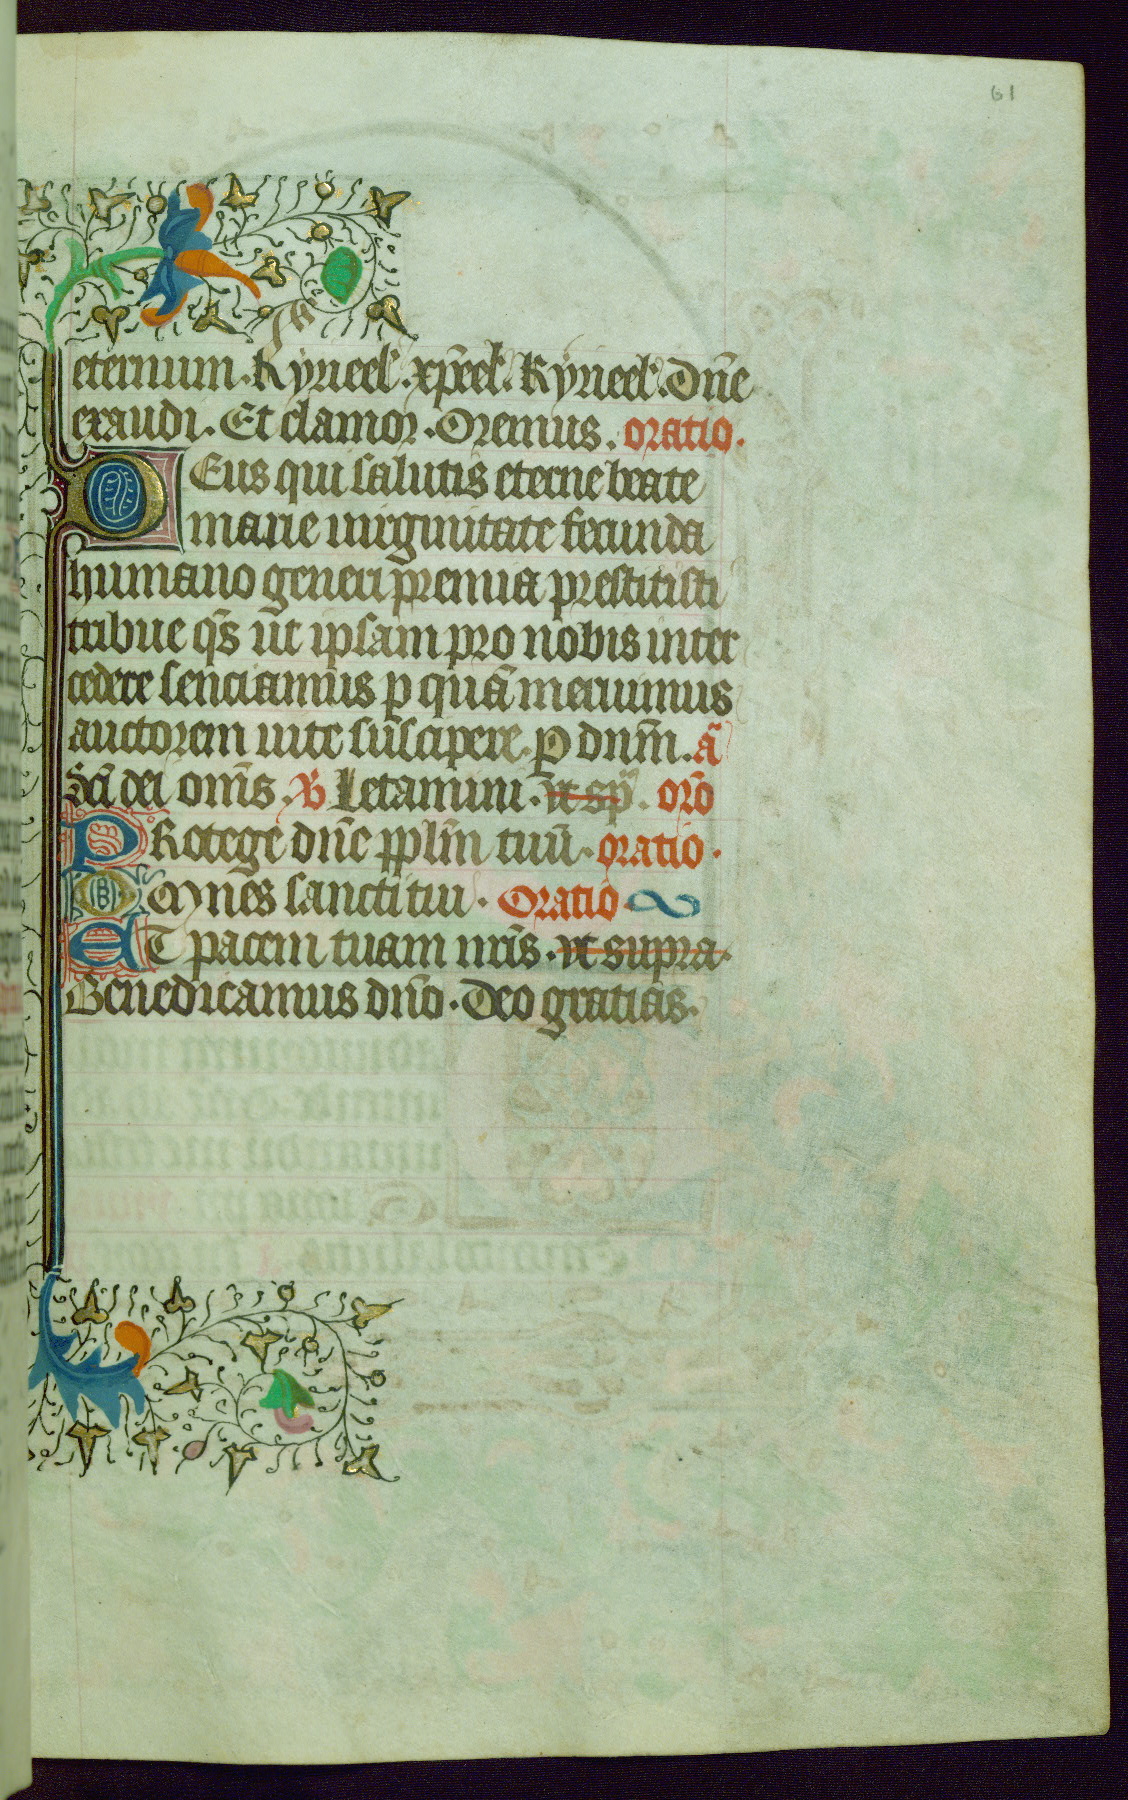 61
eternum. Kyrieel'. xp̄eel'. Kyrieel'. Dn̄e
exaudi. Et clamor. Oremus. oratio.
DEus qui salutis eterne beate
marie uirginitate fecunda
humano generi premia prestitisti
tribue q̄s ut ipsam pro nobis inter
cedere senciamus p quā meruimus
auctorem uite suscipere. P dn̄m. ā
Sc̄i dei om̄s. V Letamini. vt sp̄. orō
PRotege dn̄e pplm̄ tuū. oratio.
OMnes sancti tui. Oratio
ET pacem tuam nr̄is. vt supra.
Benedicamus dn̄o. Deo gratias.